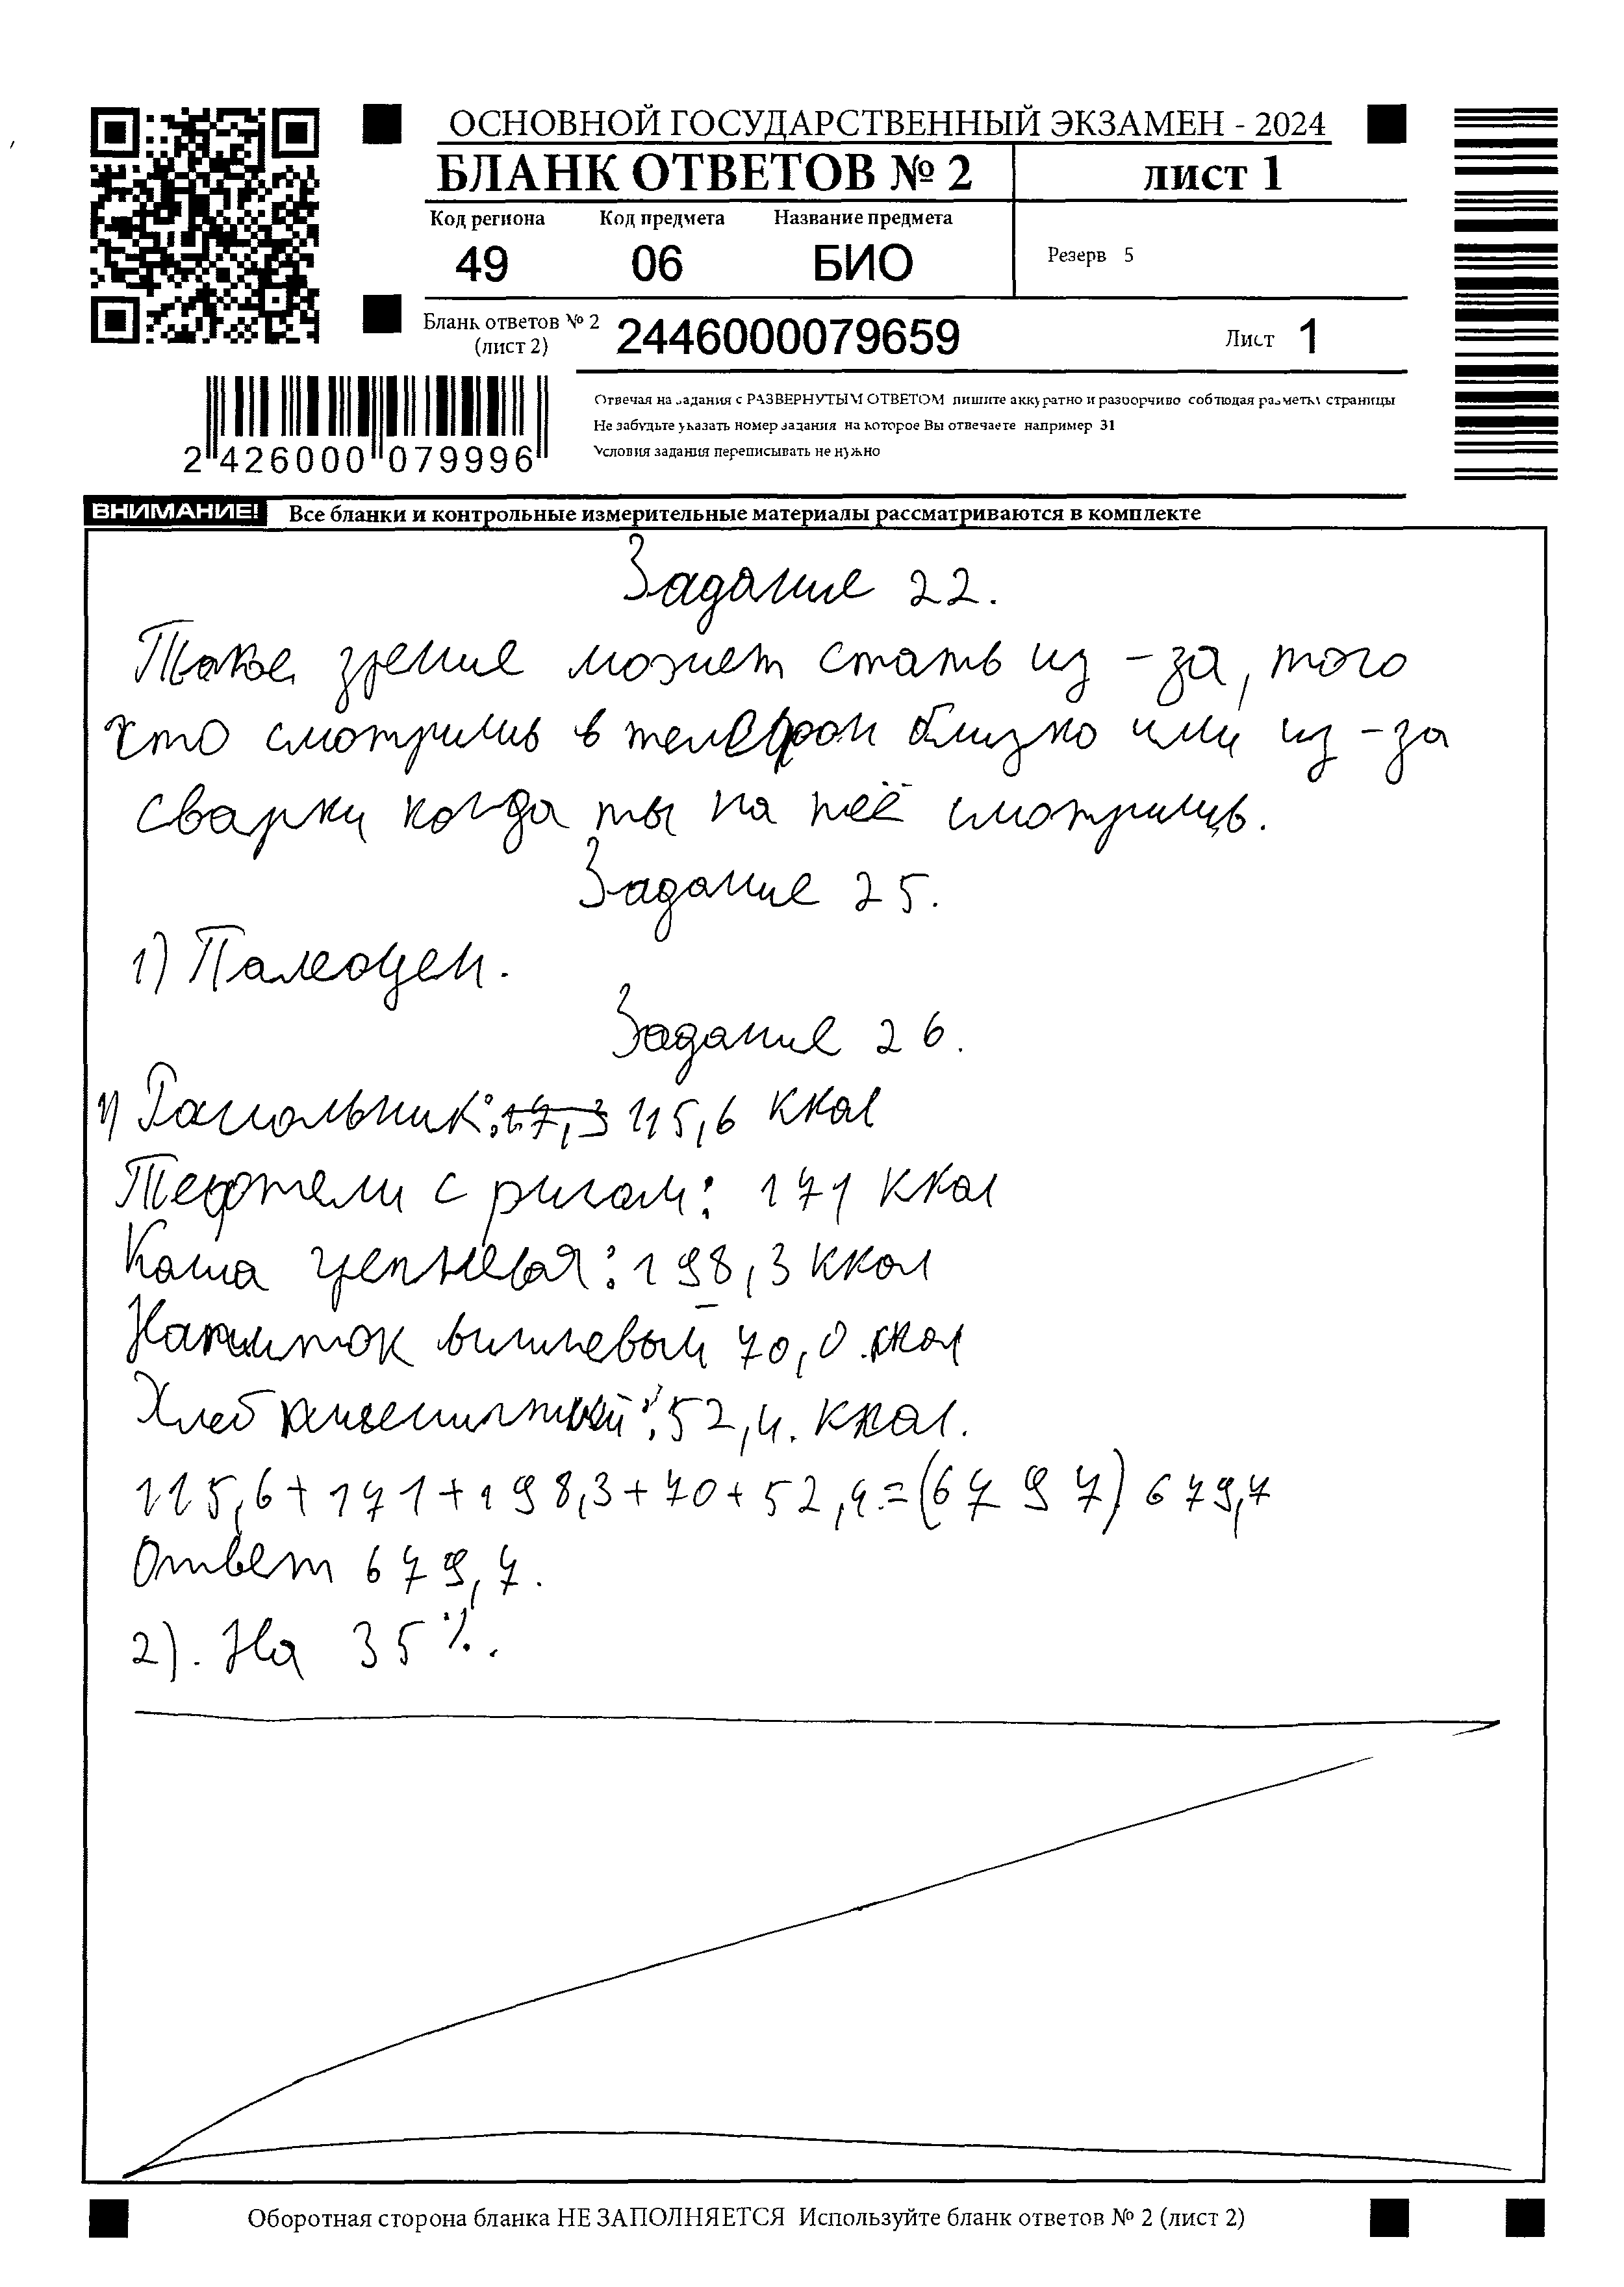 ОСНОВНОЙ ГОСУДАРСТВЕННЫЙ ЭКЗАМЕН - 2024
БЛАНК ОТВЕТОВ № 2 лист 1
Код региона Код предмета Название предмета
49 06 БИО
Резерв 5
Бланк ответов № 2 (лист 2) 2446000079659 Лист 1
2 426000 079996
Отвечая на задания с РАЗВЕРНУТЫМ ОТВЕТОМ пишите аккуратно и разборчиво соблюдая разметку страницы
Не забудьте указать номер задания на которое Вы отвечаете например 31
Условия задания переписывать не нужно
ВНИМАНИЕ! Все бланки и контрольные измерительные материалы рассматриваются в комплекте
Задание 22.
Такое зрение может стать из-за, того
что смотришь в телефон близко или из-за
сварки когда ты на неё смотришь.
Задание 25.
1) Палеоцен.
Задание 26.
1) Рассольник: 17,3 115,6 ккал
Тефтели с рисом: 171 ккал
Каша гречневая: 198,3 ккал
Напиток вишневый 70,0 ккал
Хлеб пшеничный: 52,4. ккал.
115,6+171+198,3+70+52,4=(6797) 679,7
Ответ 679,7.
2). На 35%.
Оборотная сторона бланка НЕ ЗАПОЛНЯЕТСЯ Используйте бланк ответов № 2 (лист 2)